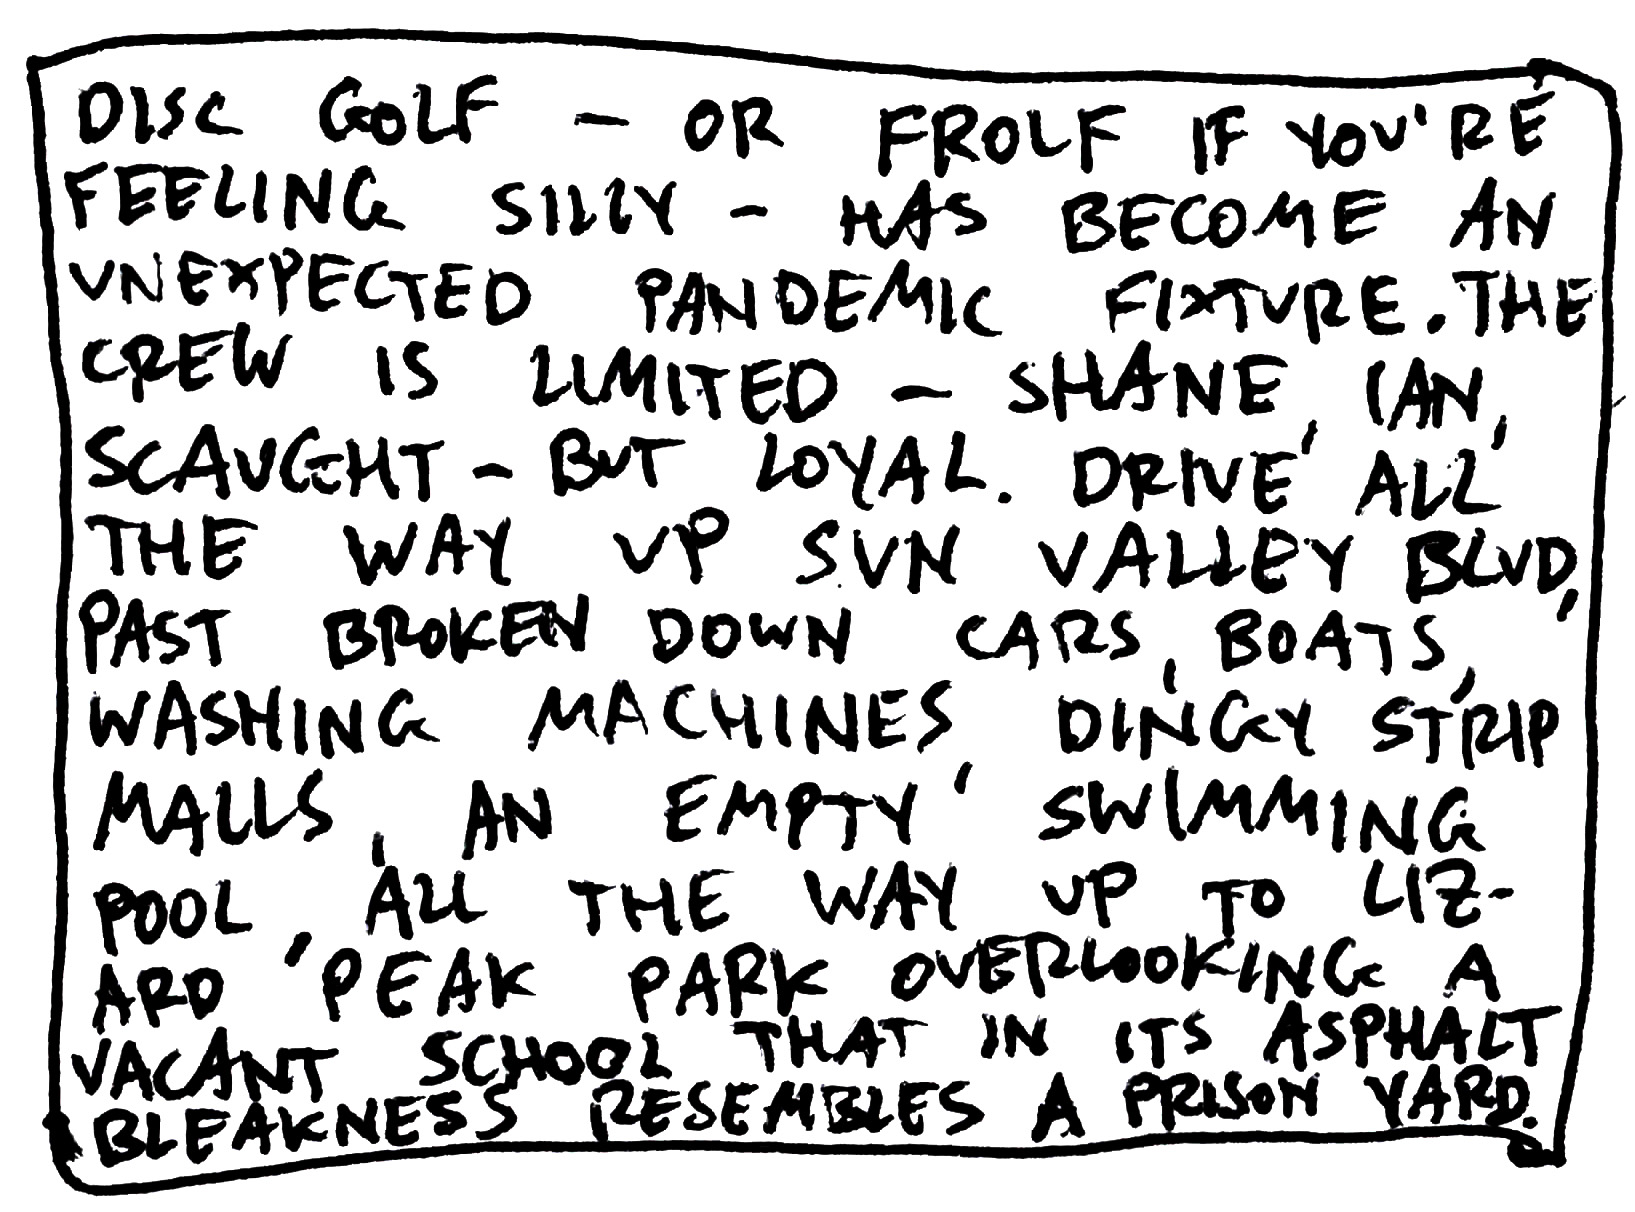 DISC GOLF – OR FROLF IF YOU'RE
FEELING SILLY – HAS BECOME AN
UNEXPECTED PANDEMIC FIXTURE. THE
CREW IS LIMITED – SHANE, IAN,
SCAUGHT – BUT LOYAL. DRIVE ALL
THE WAY UP SUN VALLEY BLVD,
PAST BROKEN DOWN CARS, BOATS,
WASHING MACHINES, DINGY STRIP
MALLS, AN EMPTY SWIMMING
POOL, ALL THE WAY UP TO LIZ-
ARD PEAK PARK OVERLOOKING A
VACANT SCHOOL THAT IN ITS ASPHALT
BLEAKNESS RESEMBLES A PRISON YARD.